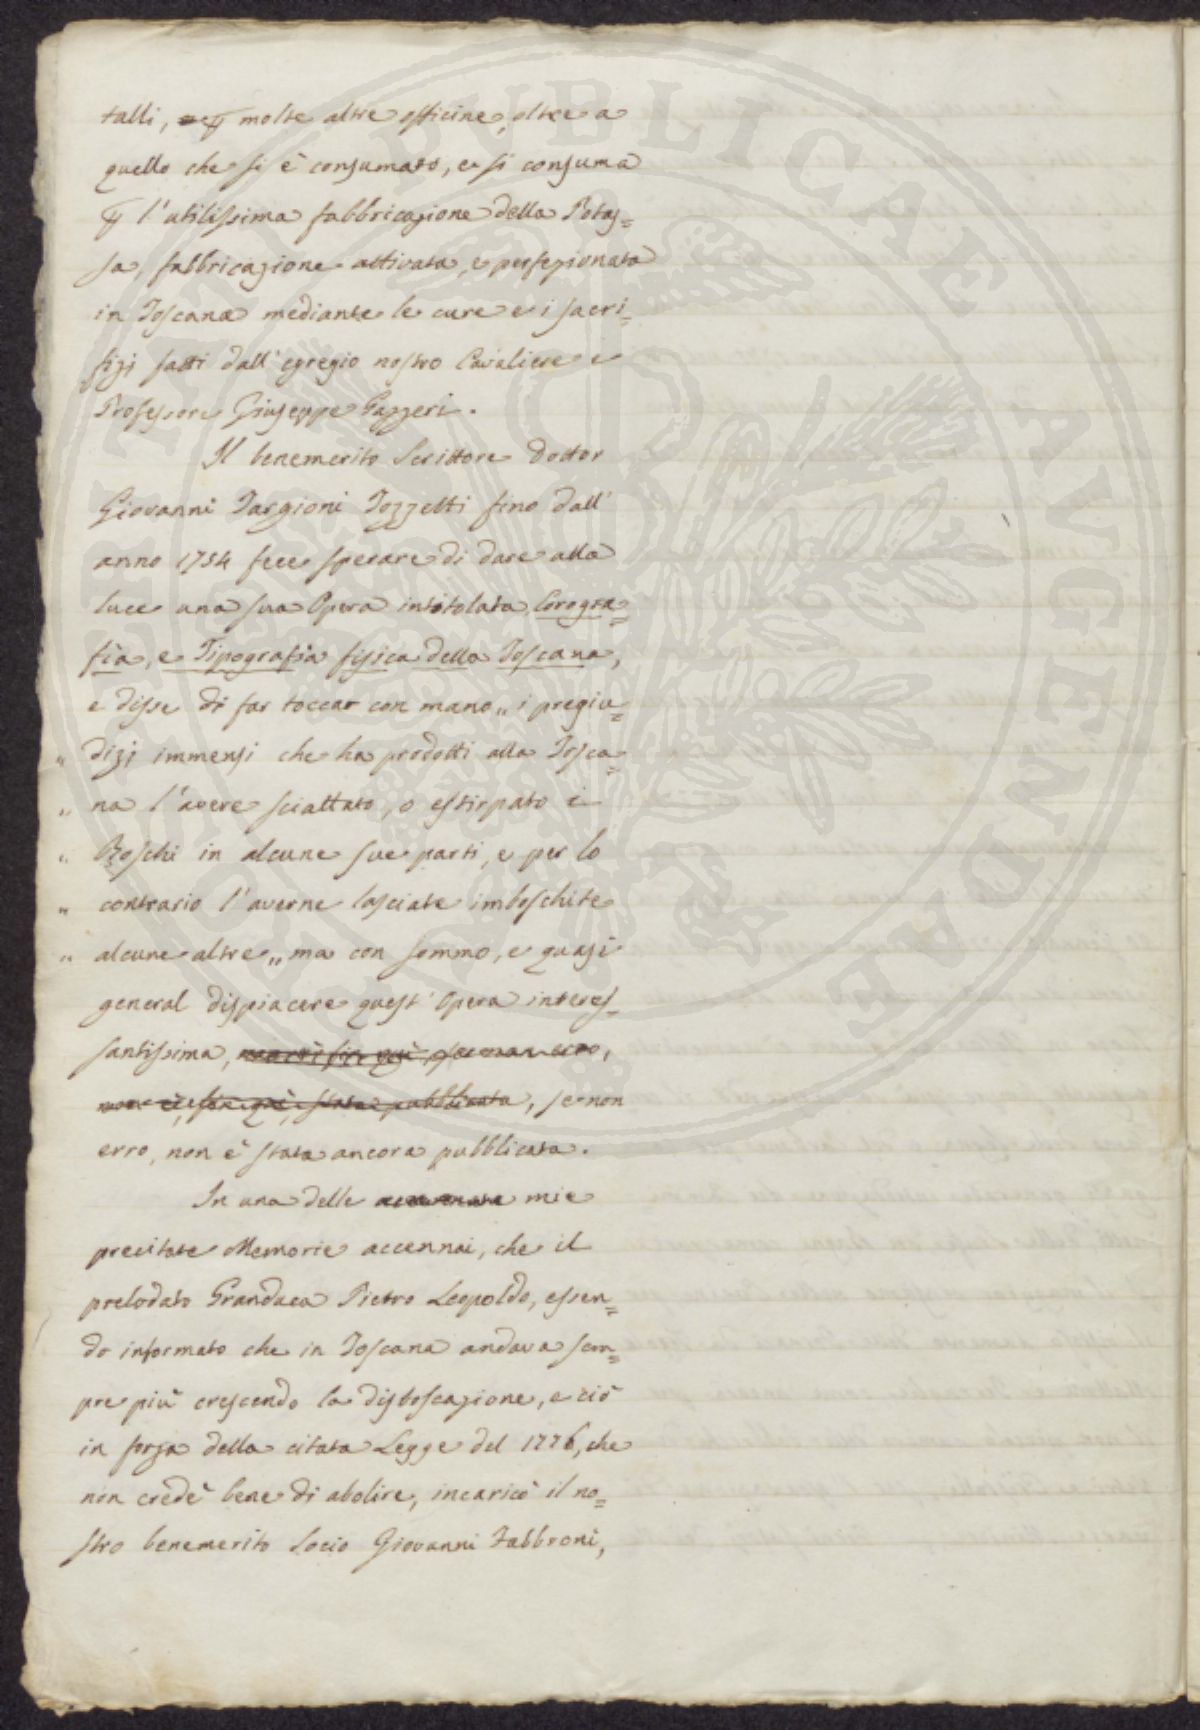 talli, e ꝑ molte altre officine, oltre a
quello che si è consumato, e si consuma
ꝑ l'utilissima fabbricazione della Potas=
sa, fabbricazione attivata, e perfezionata
in Toscana mediante le cure e i sacri=
fizi fatti dall'egregio nostro Cavaliere e
Professore Giuseppe Gazzeri.
Il benemerito Scrittore Dottor
Giovanni Targioni Tozzetti fino dall'
anno 1754 fece sperare di dare alla
luce una sua Opera intitolata Corogra=
fia, e Tipografia fisica della Toscana,
e disse di far toccar con mano „ i pregiu=
„ dizi immensi che ha prodotti alla Tosca=
„ na l'avere sciattato, o estirpato i
„ Boschi in alcune sue parti, e per lo
„ contrario l'averne lasciate imboschite
„ alcune altre „ ma con sommo, e quasi
general dispiacere quest'Opera interes=
santissima,
non è, fin quì, stata pubblicata, se non
erro, non è stata ancora pubblicata.
In una delle mie
precitate Memorie accennai, che il
prelodato Granduca Pietro Leopoldo, essen=
do informato che in Toscana andava sem=
pre più crescendo la disboscazione, e ciò
in forza della citata Legge del 1776, che
non credè bene di abolire, incaricò il no=
stro benemerito Socio Giovanni Fabbroni,
PUBLICAE
AUGENDAE